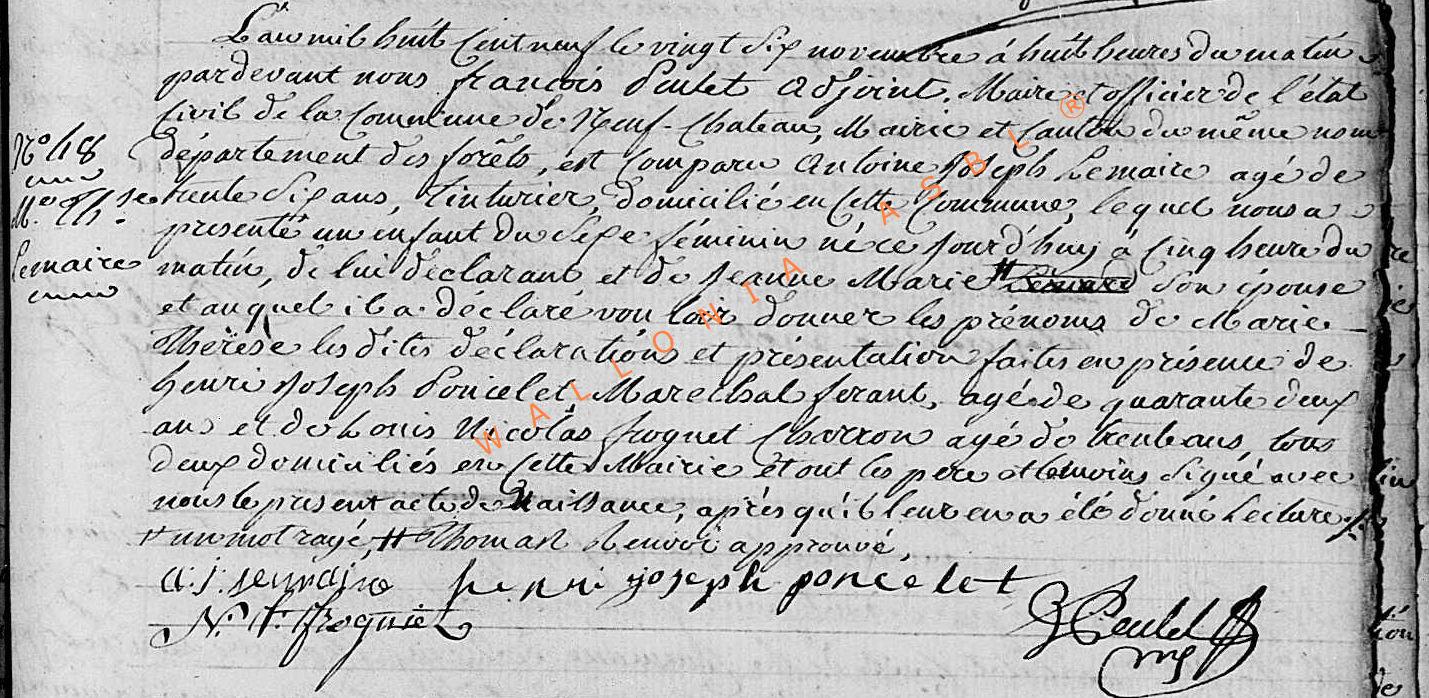 L'an mil huit Cent neuf le vingt Six novembre à huit heures du matin
pardevant nous françois Peulet Adjoint. Maire et officier de l'état
Civil de la Commune de Neuf-Chateau, Mairie et Canton du même nom
N.º 48 département des forêts, est Comparu Antoine Joseph Lemaire agé de
M.e Th.se trente Six ans, tinturier, domicilié en Cette Commune, lequel nous a
présenté un enfant du Sexe féminin né ce Jourd'huy à Cinq heure du
Lemaire matin, de lui déclarant et de Jenne Marie # son épouse
et auquel il a déclaré vouloir donner les prénoms de Marie
Thérèse les dites déclarations et présentation faites en présence de
henri Joseph Poncelet Marechal ferant, agé de quarante deux
ans et de Louis Nicolas froguet Charron agé de trente ans, tous
deux domiciliés en Cette Mairie et ont les pere et temoins Signé avec
nous le present acte de Naissance, après qu'il leur en a été donné Lecture
# un mot rayé, # Thomas Renvoi approuvé,
a. j. lemaire henri joseph poncelet
N. L. froguiet Peulet
WALLONIA ASBL ®